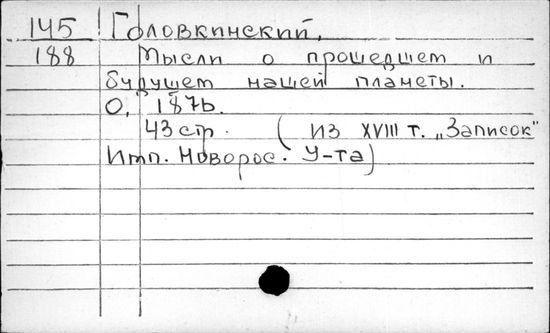 145 Головкинский.
188 Мысли о прошедшем и
будущем нашей планеты.
О, 1876.
43 стр. (из XVIII т. „Записок"
Имп. Новорос. У-та)